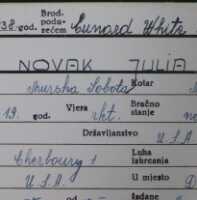 38. god. Brod.
poduzećem Cunard White
NOVAK JULIA
Murska Sobota Kotar
19. god. Vjera rkt. Bračno stanje
Državljanstvo U.S.A.
Cherbourg Luka iskrcanja
U.S.A. U mjesto D